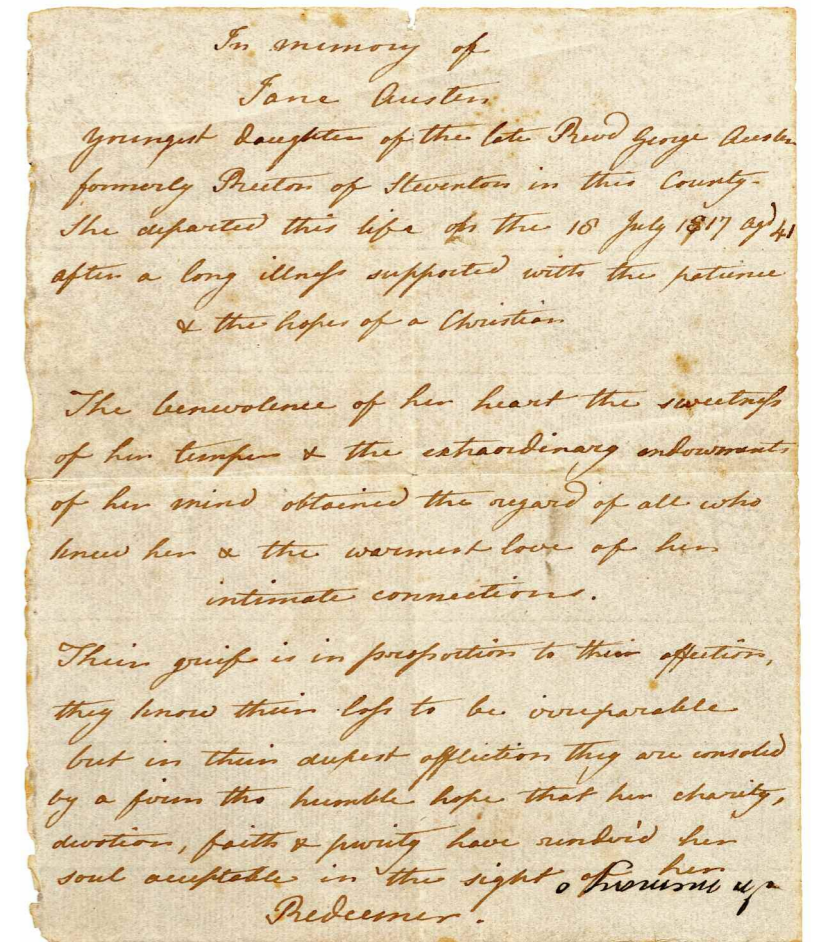 In memory of
Jane Austen
youngest daughter of the late Revd George Austen
formerly Rector of Steventon in this County-
She departed this life on the 18 July 1817 agd 41
after a long illness supported with the patience
& the hopes of a Christian
The benevolence of her heart the sweetness
of her temper & the extraordinary endowments
of her mind obtained the regard of all who
knew her & the warmest love of her
intimate connections.
Their grief is in proportion to their affection,
they know their loss to be irreparable
but in their deepest affliction they are consoled
by a firm tho humble hope that her charity,
devotion, faith & purity have render'd her
soul acceptable in the sight of her
Redeemer.